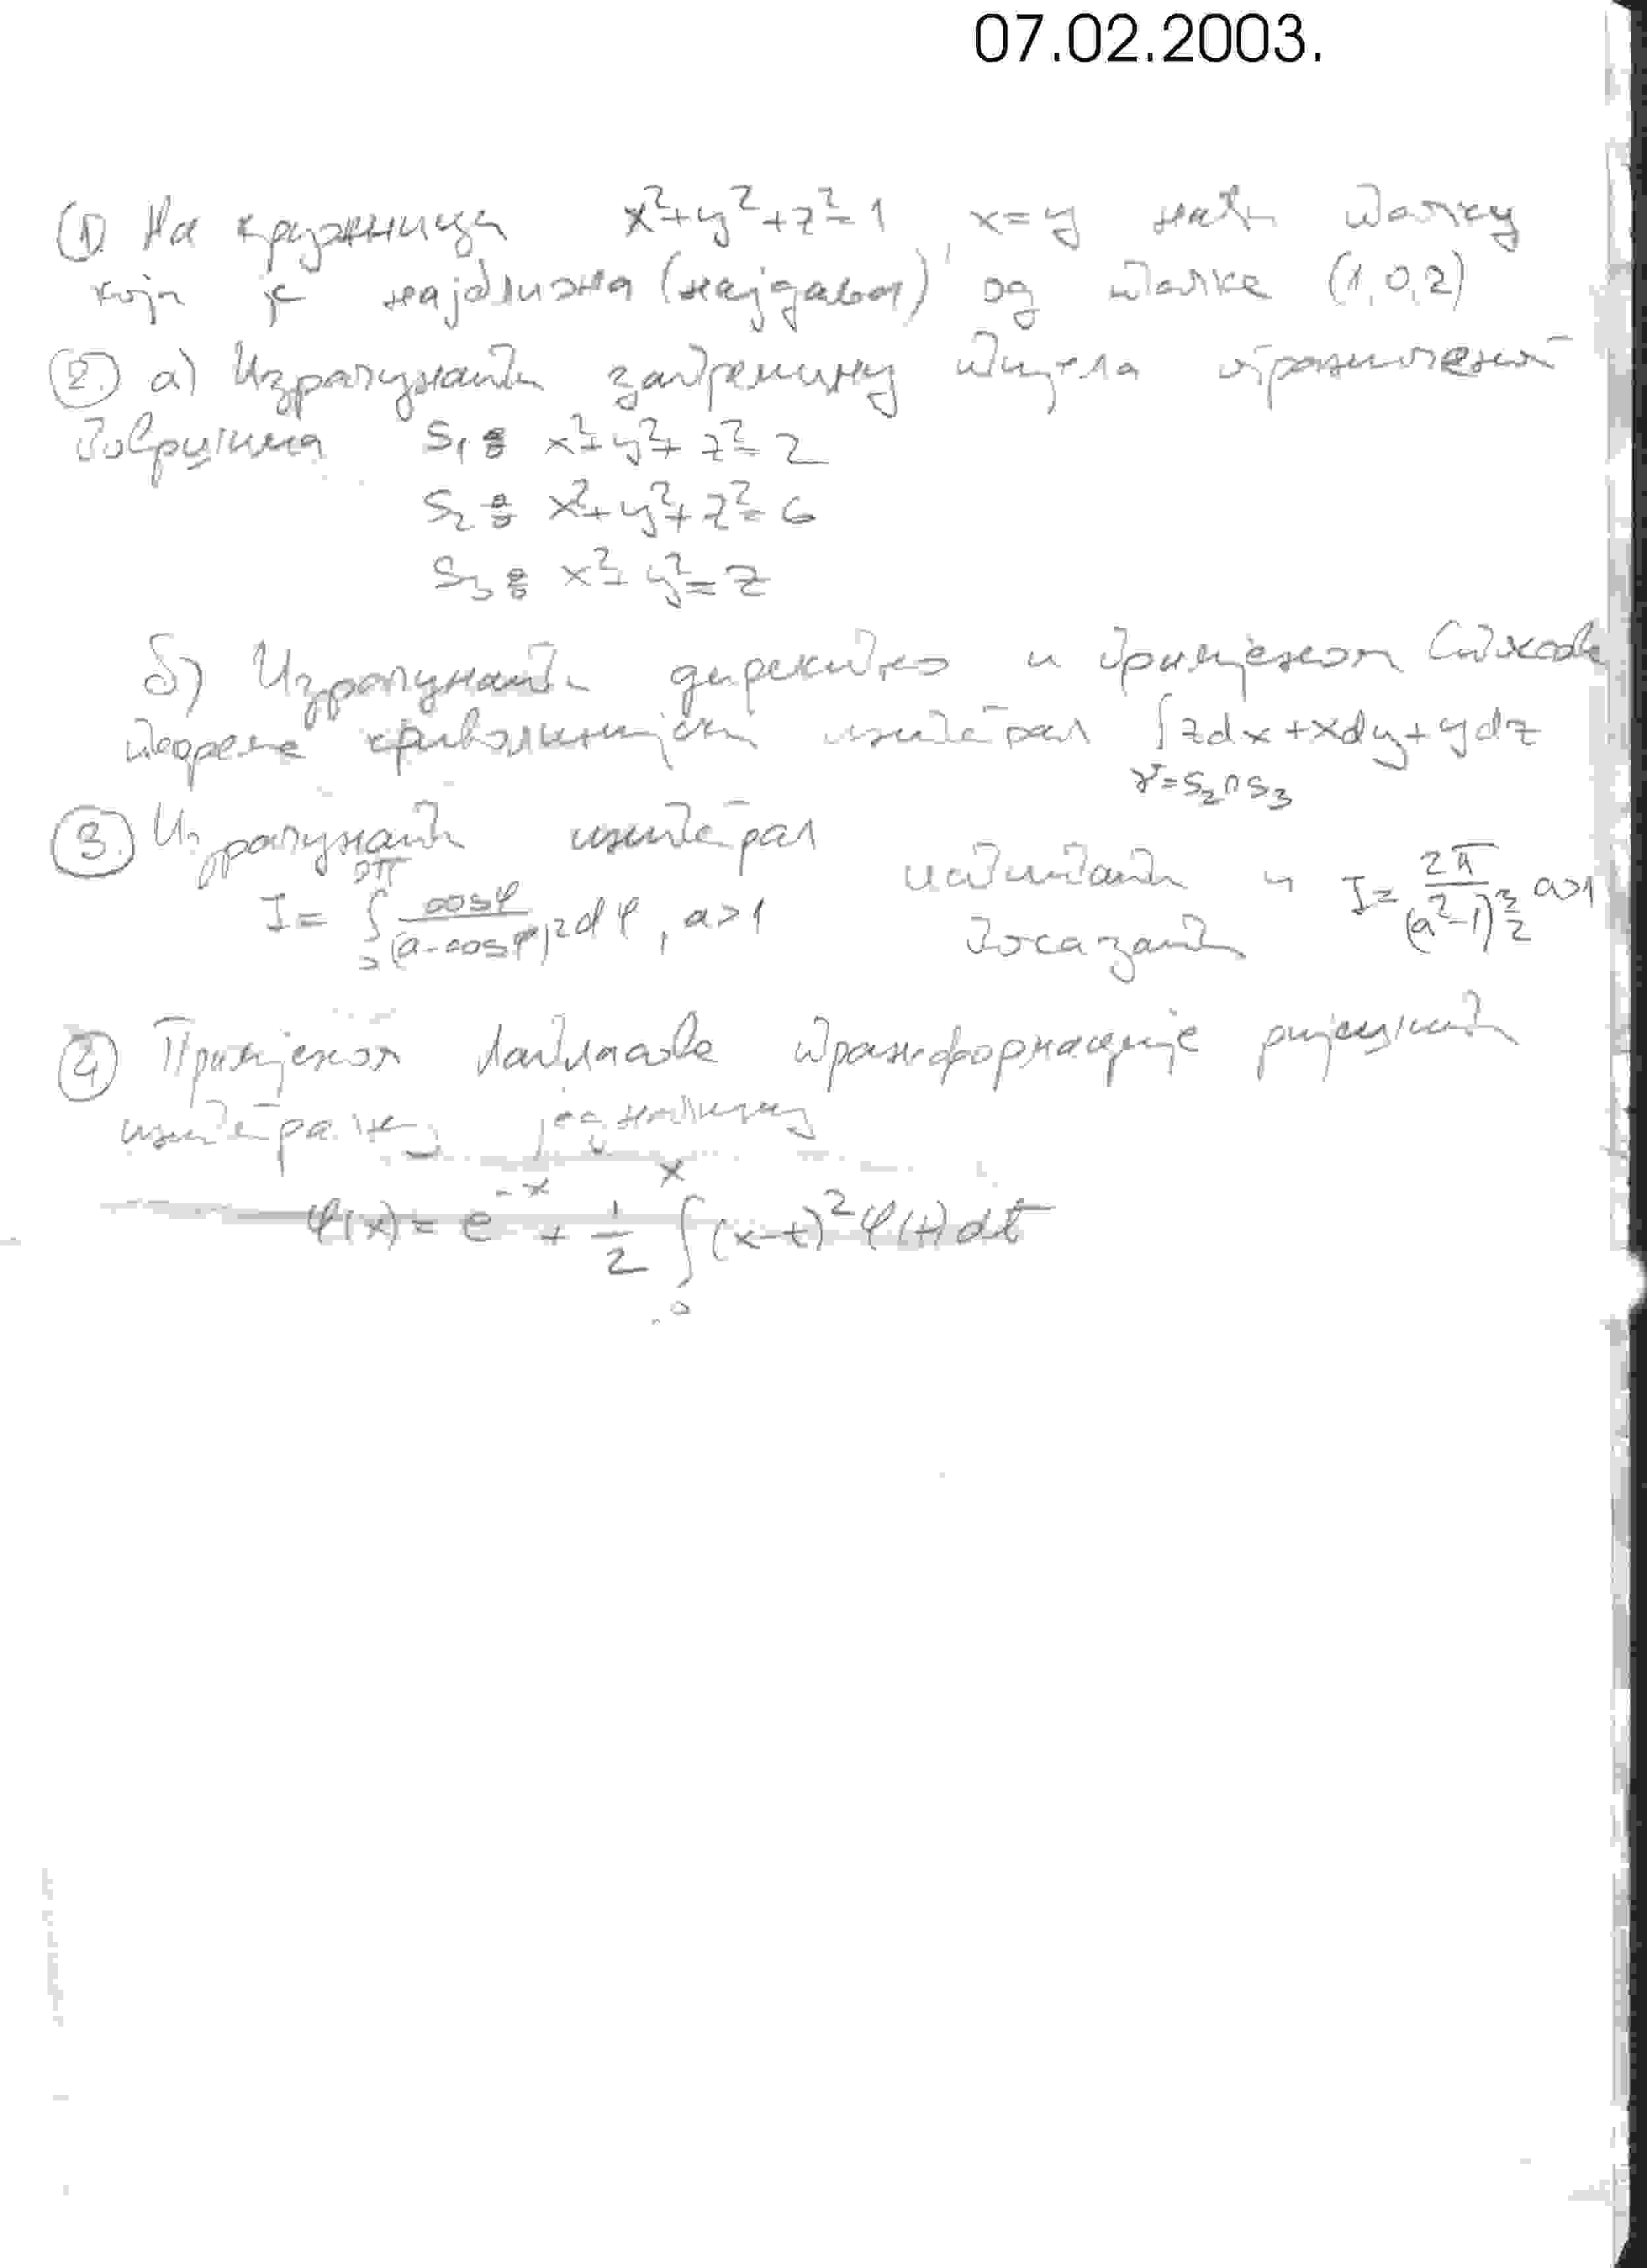 07.02.2003.
1. На кружници x²+y²+z²=1, x=y наћи тачку
која је најближа (најдаља) од тачке (1,0,2)
2. а) Израчунати запремину тијела ограниченог
површима S₁: x²+y²+z²=2
S₂: x²+y²+z²=6
S₃: x²+y²=z
б) Израчунати директно и примјеном Стоксове
теореме криволинијски интеграл ∫ zdx+xdy+ydz
γ=S₂∩S₃
3. Израчунати интеграл
I= ∫₀^{2π} cosφ/(a-cosφ)² dφ, a>1 и I= 2π/(a²-1)^{3/2} a>1
4. Примјеном Лапласове трансформације ријешити
интегралну једначину
φ(x)= e^{-x} + 1/2 ∫₀^x (x-t)² φ(t)dt